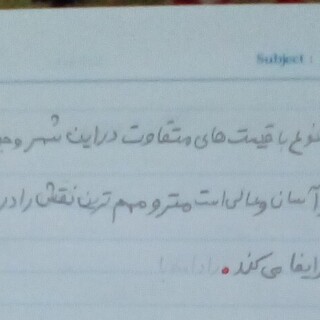 Subject :
متنوع با قیمت های متفاوت در این شهر وجو
آسان و عالی است مترو مهم ترین نقش را در
ایفا می کند.